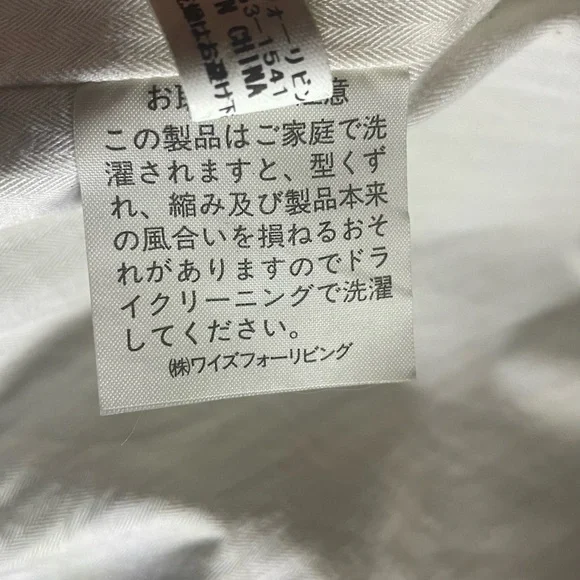 ォーリビン
53-1541
N CHINA
はお避け下
お取 注意
この製品はご家庭で洗
濯されますと、型くず
れ、縮み及び製品本来
の風合いを損ねるおそ
れがありますのでドラ
イクリーニングで洗濯
してください。
㈱ワイズフォーリビング